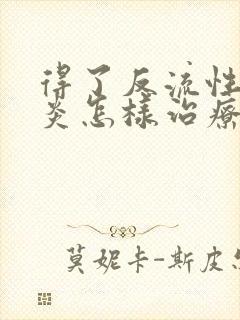 得了反流性
炎怎樣治療
莫妮卡-斯皮